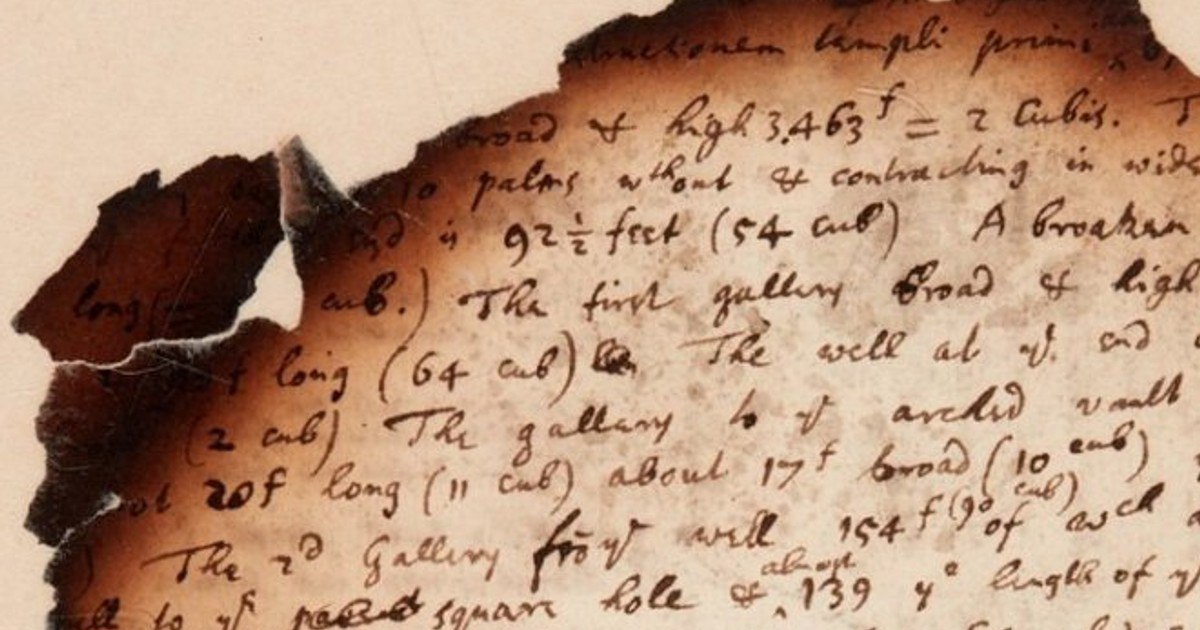 templi primi
broad & high 3.463f = 2 Cubis. T
10 palms wthout & contracting in wide
end is 92½ feet (54 cub) A broaken
long (= cub.) The first gallery broad & high
long (64 cub) The well at ye. end
(2 cub) The gallery to ye arched vault
20f long (11 cub) about 17f broad (10 cub)
) The 2d Gallery fro ye well 154f (90 cub) of wch
to ye square hole & almost 139 ye length of ye